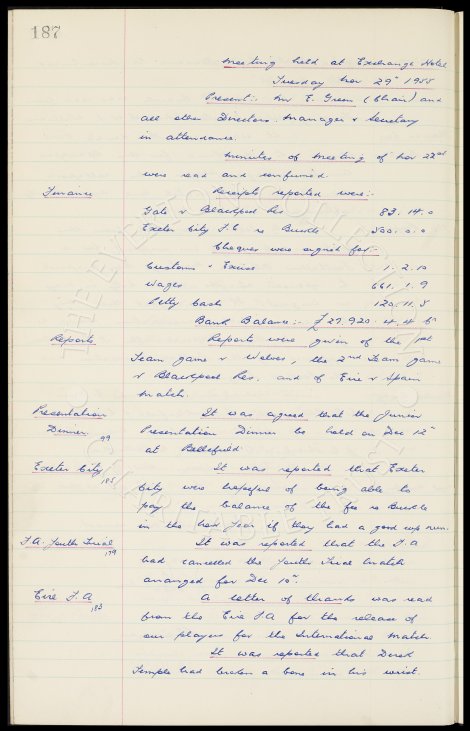 187
Meeting held at Exchange Hotel
Tuesday Nov 29th 1955
Present:- Mr E. Green (Chair) and
all other Directors. Manager & Secretary
in attendance.
Minutes of Meeting of Nov 22nd
were read and confirmed.
Finance Receipts reported were:-
Gate v Blackpool Res 83. 14. 0
Exeter City F.C re Buckle 500. 0. 0
Cheques were signed for:-
Customs & Excise 1. 2. 10
Wages 661. 1. 9
Petty Cash 120. 11. 8
Bank Balance:- £27,920. 4. 4
Reports Reports were given of the 1st
Team game v Wolves, the 2nd Team game
v Blackpool Res. and of Eire v Spain
match.
Presentation It was agreed that the Junior
Dinner 99 Presentation Dinner be held on Dec 12th
at Bellefield.
Exeter City 185 It was reported that Exeter
City were hopeful of being able to
pay the balance of the fee re Buckle
in the New Year if they had a good cup run.
F.A. Youth Trial 179 It was reported that the F.A
had cancelled the Youth Trial match
arranged for Dec 10th.
Eire F.A 183 A letter of thanks was read
from the Eire F.A for the release of
our players for the International Match.
It was reported that Derek
Temple had broken a bone in his wrist.
THE EVERTON COLLECTION
CHARITABLE TRUST